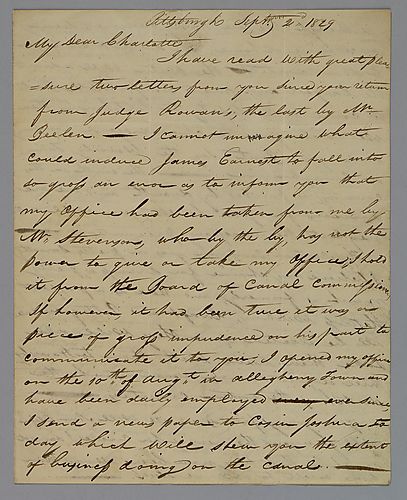 Pittsburgh Septr. 2d 1829
My Dear Charlotte
I have read with great plea
=sure two letters from you since your return
from Judge Rowan's, the last by Mr.
Beelen — I cannot imagine what
could induce James Earnest to fall into
so gross an error as to inform you that
my Office had been taken from me by
Mr Stevenson, who by the by, has not the
power to give or take my Office, I hold
it from the Board of Canal Commission
If however it had been true it was a
piece of gross impudence on his part to
communicate it to you, I opened my office
on the 10th of Augt. in allegheny Town and
have been daily employed ever since,
I send a news paper to Cosin Joshua to
day which will shew you the extent
of business doing on the canal. —